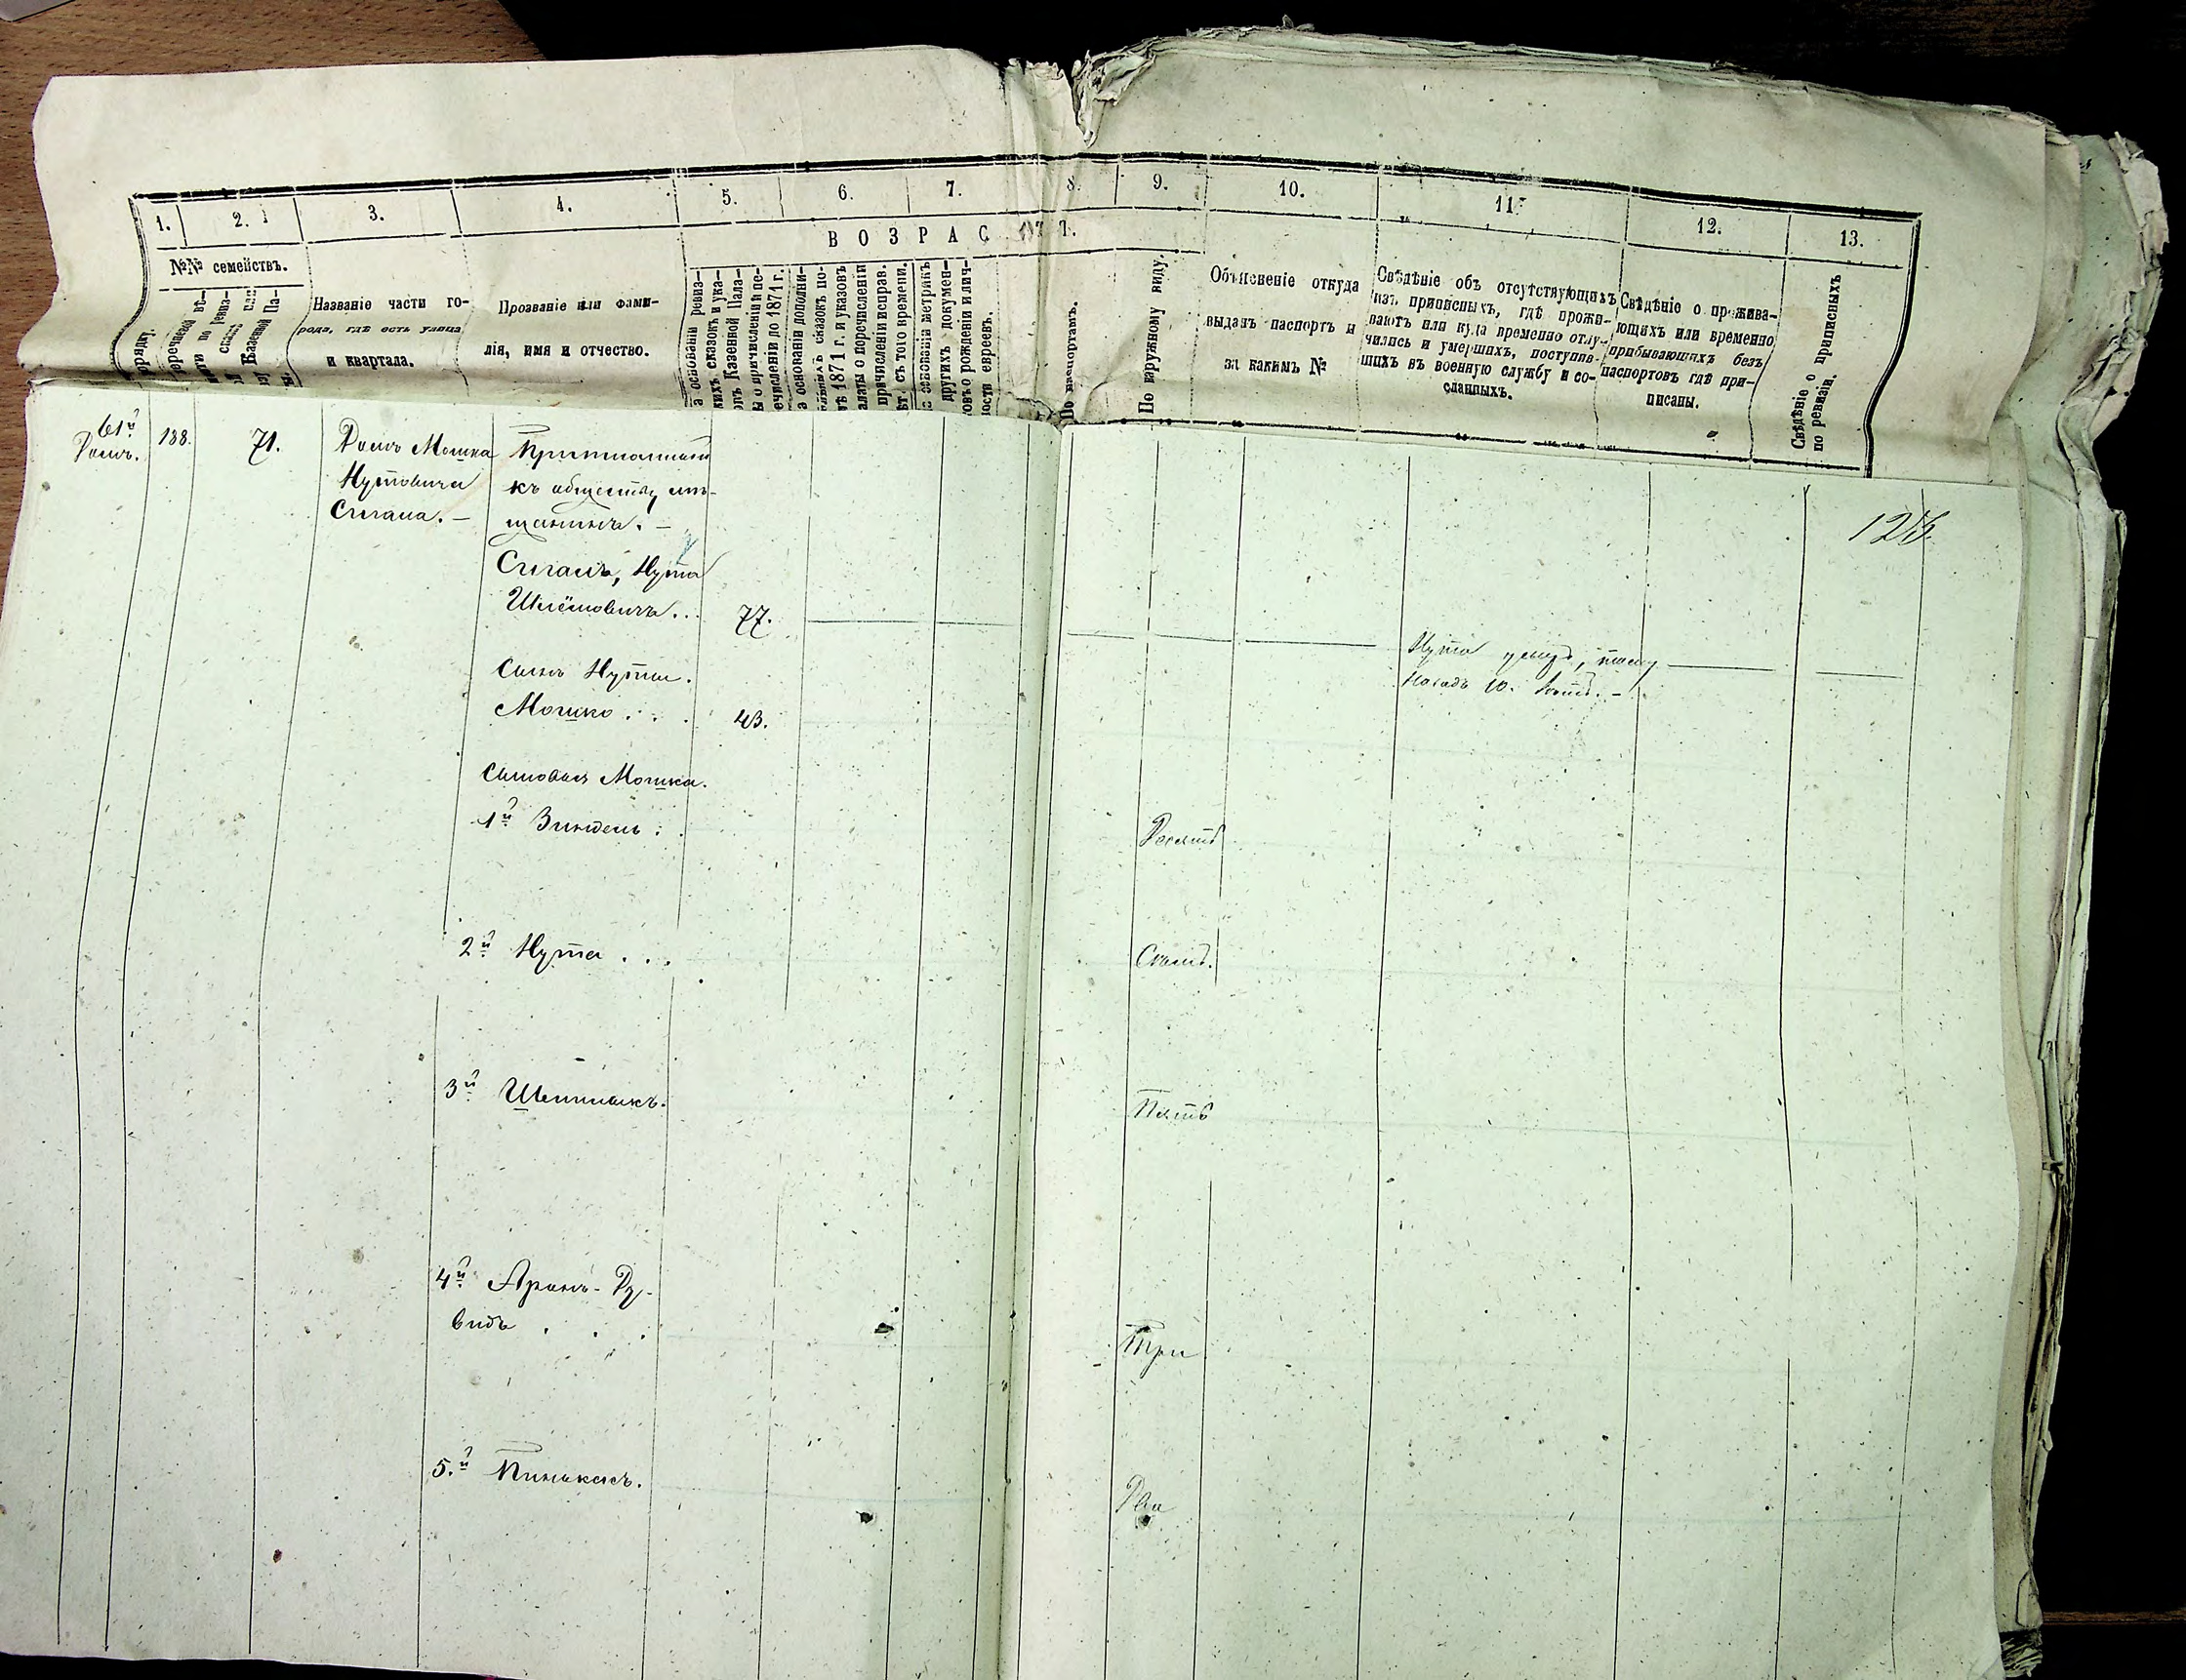 1. 2. 3. 4. 5. 6. 7. 8. 9. 10. 11. 12. 13.
ВОЗРАСТ
№№ семействъ.
Названіе части го-
рода, гдѣ есть улица
и квартала.
Прозваніе или фами-
лія, имя и отчество.
ревиз-
скихъ сказокъ и ука-
Казенной Пала-
о причисленіи и пе-
речисленіи до 1871 г.
основаніи дополни-
сказокъ по-
1871 г. и указовъ
Палаты о перечисленіи
причисленіи исправ.
съ того времени.
основаніи метрикъ
другихъ докумен-
товъ о рожденіи и лич-
ности евреевъ.
По паспортамъ.
По наружному виду.
Объясненіе откуда
выданъ паспортъ и
за какимъ №
Свѣдѣніе объ отсутствующихъ
изъ приписныхъ, гдѣ прожи-
ваютъ или куда временно отлу-
чились и умершихъ, поступив-
шихъ въ военную службу и со-
сланныхъ.
Свѣдѣніе о прожива-
ющихъ или временно
прибывающихъ безъ
паспортовъ гдѣ при-
писаны.
Свѣдѣніе о приписныхъ
по ревизіи.
61й
Домъ.
188.
71.
Домъ Мошка
Нутовича
Сигала. —
къ обществу мѣ-
щанинъ. —
Сигалъ, Нута
Шлёмовичъ...
77.
Нута умеръ, тому
назадъ 10. лѣтъ. —
Сынъ Нуты.
Мошко...
43.
Сыновья Мошка.
1й Зиндель:
Десять
2й Нута...
Семь.
3й
Пять
4й Аронъ-Ду-
видъ...
Три
5.й Пинькасъ.
Два